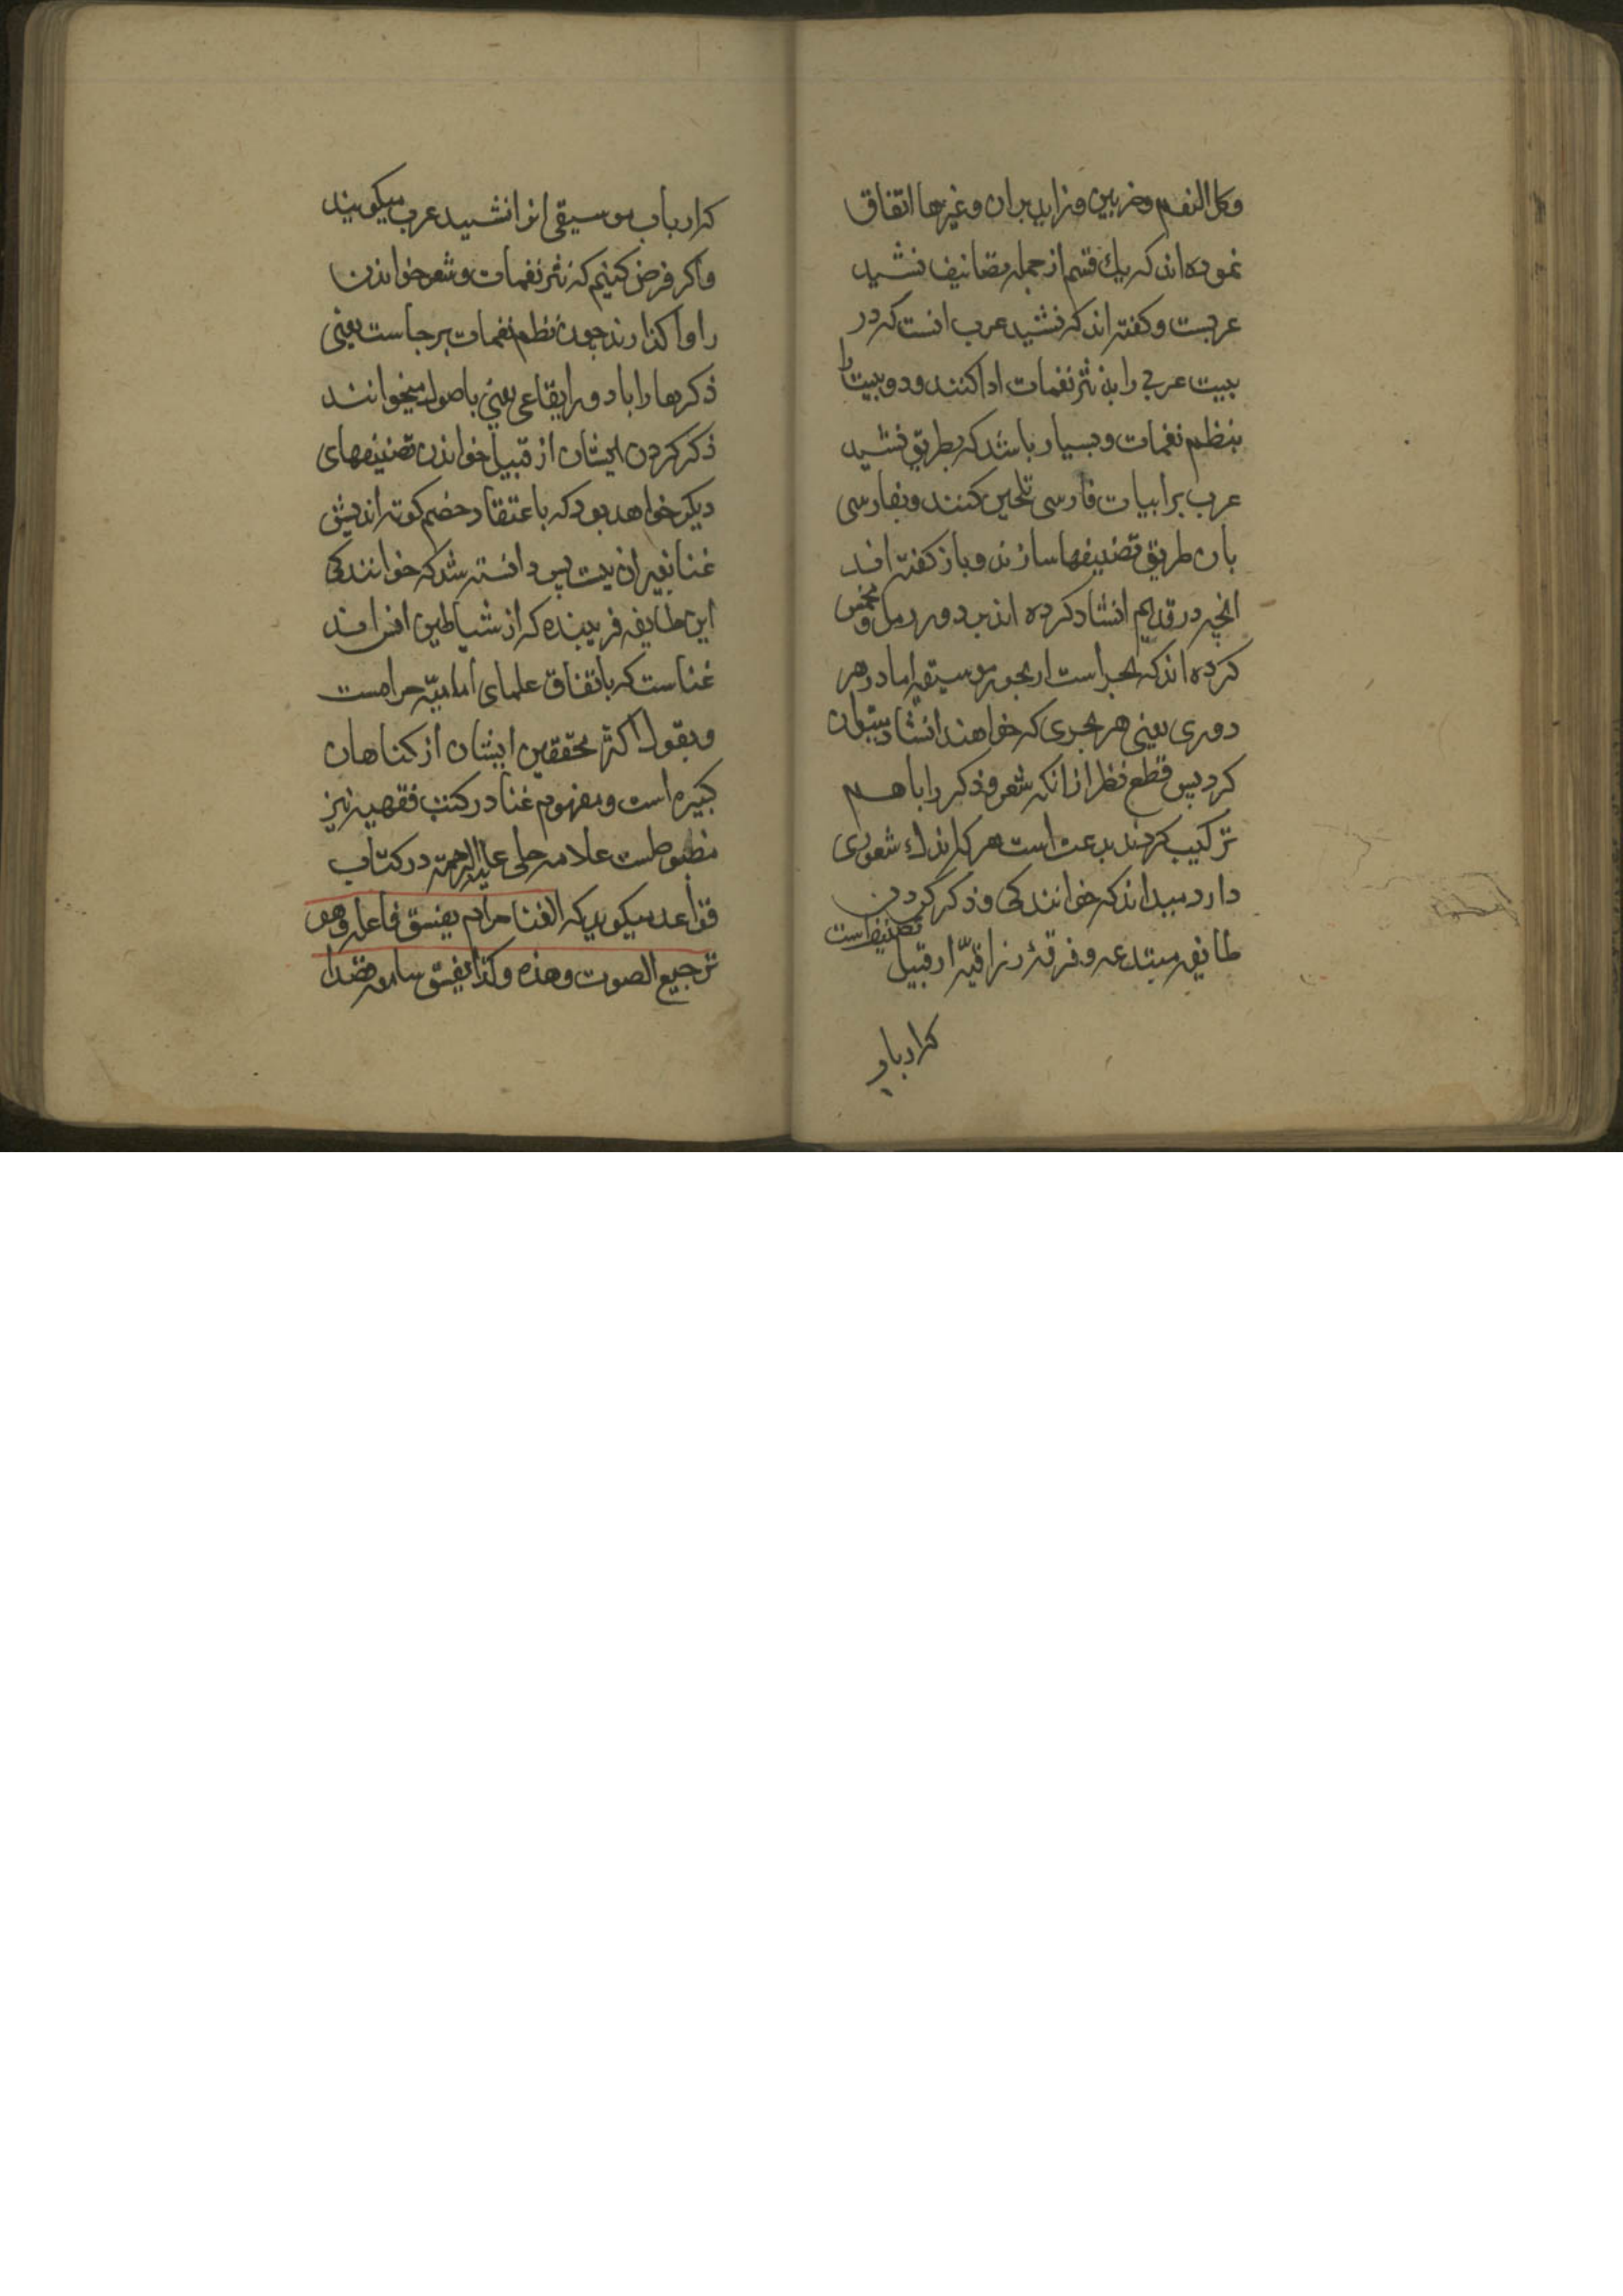 وکل النغم وضربین وزاید بران و غیرها اتفاق
نموده اند که یك قسم از جمله تصانیف نشید
عربست و کفته اند که نشید عرب انست که در
بیت عربی را به نثر نغمات ادا کنند و دو بیت را
بنظم نغمات و بسیار باشد که بطریق نشید
عرب بر ابیات فارسی تلحین کنند و بفارسی
بان طریق تصنیفها سازند و باز کفته اند
انچه در قدیم انشاد کرده اند بر دور رمل و مخمس
کرده اند که بحر است از بحور موسیقی اما در هر
دوری یعنی هر بحری که خواهند انشاد بتوان
کرد پس قطع نظر از انکه شعر و ذکر را با هم
ترکیب کردند بدعت است هر که اندك شعوری
دارد میداند که خوانندکی و ذکر کردن
طایفه مبتدعه و فرقهٔ زراقیّه از قبیل تصنیفیست
که ارباب
که ارباب موسیقی انرا نشید عرب میکویند
و اکر فرض کنیم که نثر نغمات و شعر خواندن
را واکذارند چون نظم نغمات برجاست یعنی
ذکرها را با دور ایقاعی یعنی باصول میخوانند
ذکر کردن ایشان از قبیل خواندن تصنیفهای
دیکر خواهد بود که باعتقاد خصم کوته اندیش
غنا بغیر ان نیست پس دانسته شد که خوانندکی
این طایفه فریبنده که از شیاطین انس اند
غناست که باتفاق علمای امامیّه حرامست
و بقول اکثر محققین ایشان از کناهان
کبیره است و مفهوم غنا در کتب فقهیه نیز
مضبوطست علامه حلی علیه الرحمه در کتاب
قواعد میکوید که الغنا حرام یفسق فاعله و هو
ترجیع الصوت و مده و کذا یفسق سامعه قصدا